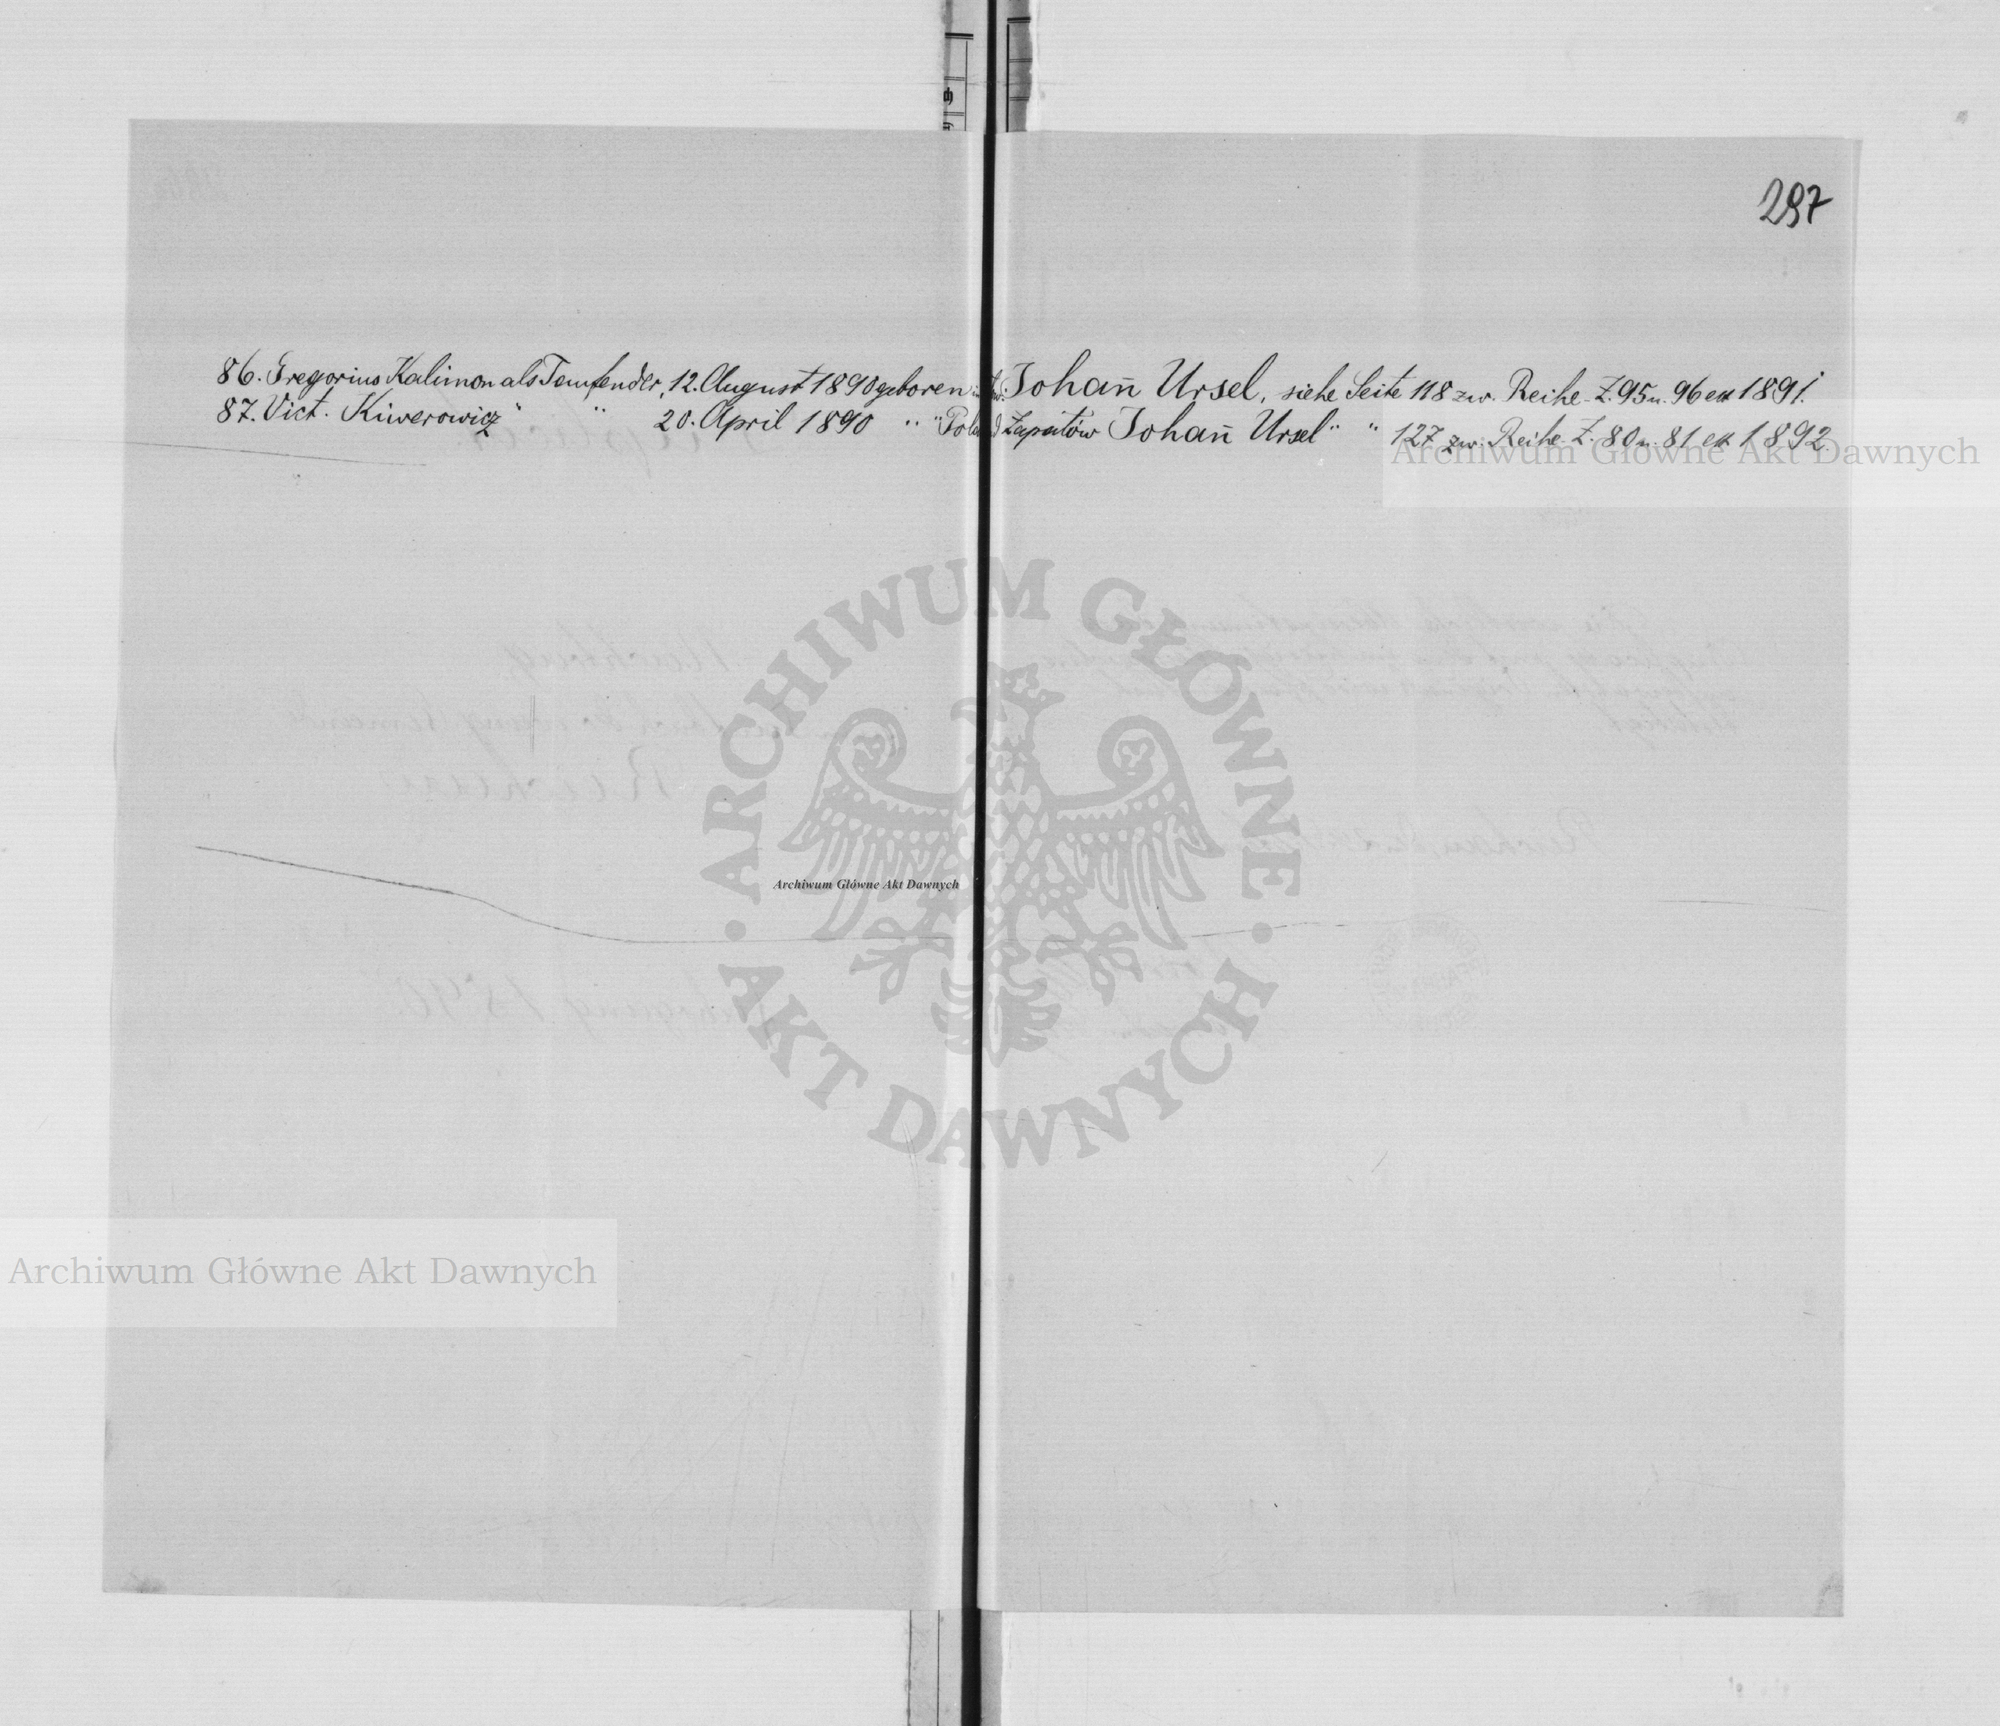 297
86. Gregorius Kalimon als Taufender, 12. August 1890 geboren Johañ Ursel, siehe Seite 118 zw. Reihe Z. 95 u. 96 ex 1891.
87. Vict. Kiwerowicz " " 20. April 1890 " " Zapałów Johañ Ursel " " 127 zw. Reihe Z. 80 u. 81 ex 1892.
Archiwum Główne Akt Dawnych
ARCHIWUM GŁÓWNE AKT DAWNYCH
Archiwum Główne Akt Dawnych
Archiwum Główne Akt Dawnych